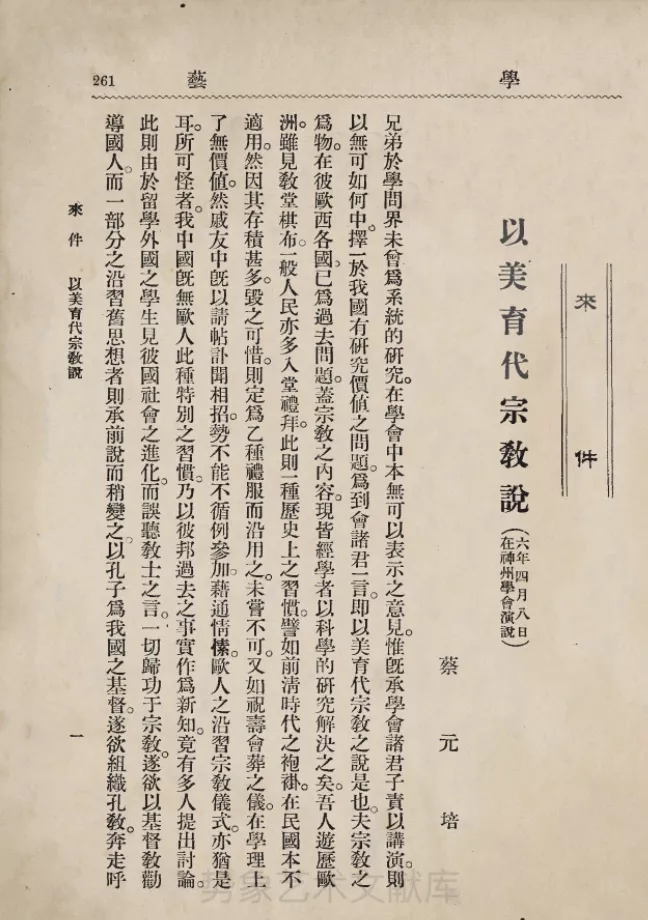 學藝
261
來件
以美育代宗教說
（六年四月八日
在神州學會演說）
蔡元培
兄弟於學問界未曾爲系統的硏究。在學會中本無可以表示之意見。惟旣承學會諸君子責以講演。則
以無可如何中。擇一於我國有硏究價値之問題。爲到會諸君一言。卽以美育代宗教之說是也。夫宗教之
爲物。在彼歐西各國。已爲過去問題。蓋宗教之內容。現皆經學者以科學的硏究解決之矣。吾人遊歷歐
洲。雖見教堂棋布。一般人民亦多入堂禮拜。此則一種歷史上之習慣。譬如前淸時代之袍褂。在民國本不
適用。然因其存積甚多。毀之可惜。則定爲乙種禮服而沿用之。未嘗不可。又如祝壽會葬之儀。在學理上
了無價値。然戚友中旣以請帖訃聞相招。勢不能不循例參加。藉通情愫。歐人之沿習宗教儀式。亦猶是
耳。所可怪者。我中國旣無歐人此種特別之習慣。乃以彼邦過去之事實作爲新知。竟有多人提出討論。
此則由於留學外國之學生見彼國社會之進化。而誤聽教士之言。一切歸功于宗教。遂欲以基督教勸
導國人。而一部分之沿習舊思想者則承前說而稍變之。以孔子爲我國之基督。遂欲組織孔教。奔走呼
來件 以美育代宗教說
一
势象艺术文献库